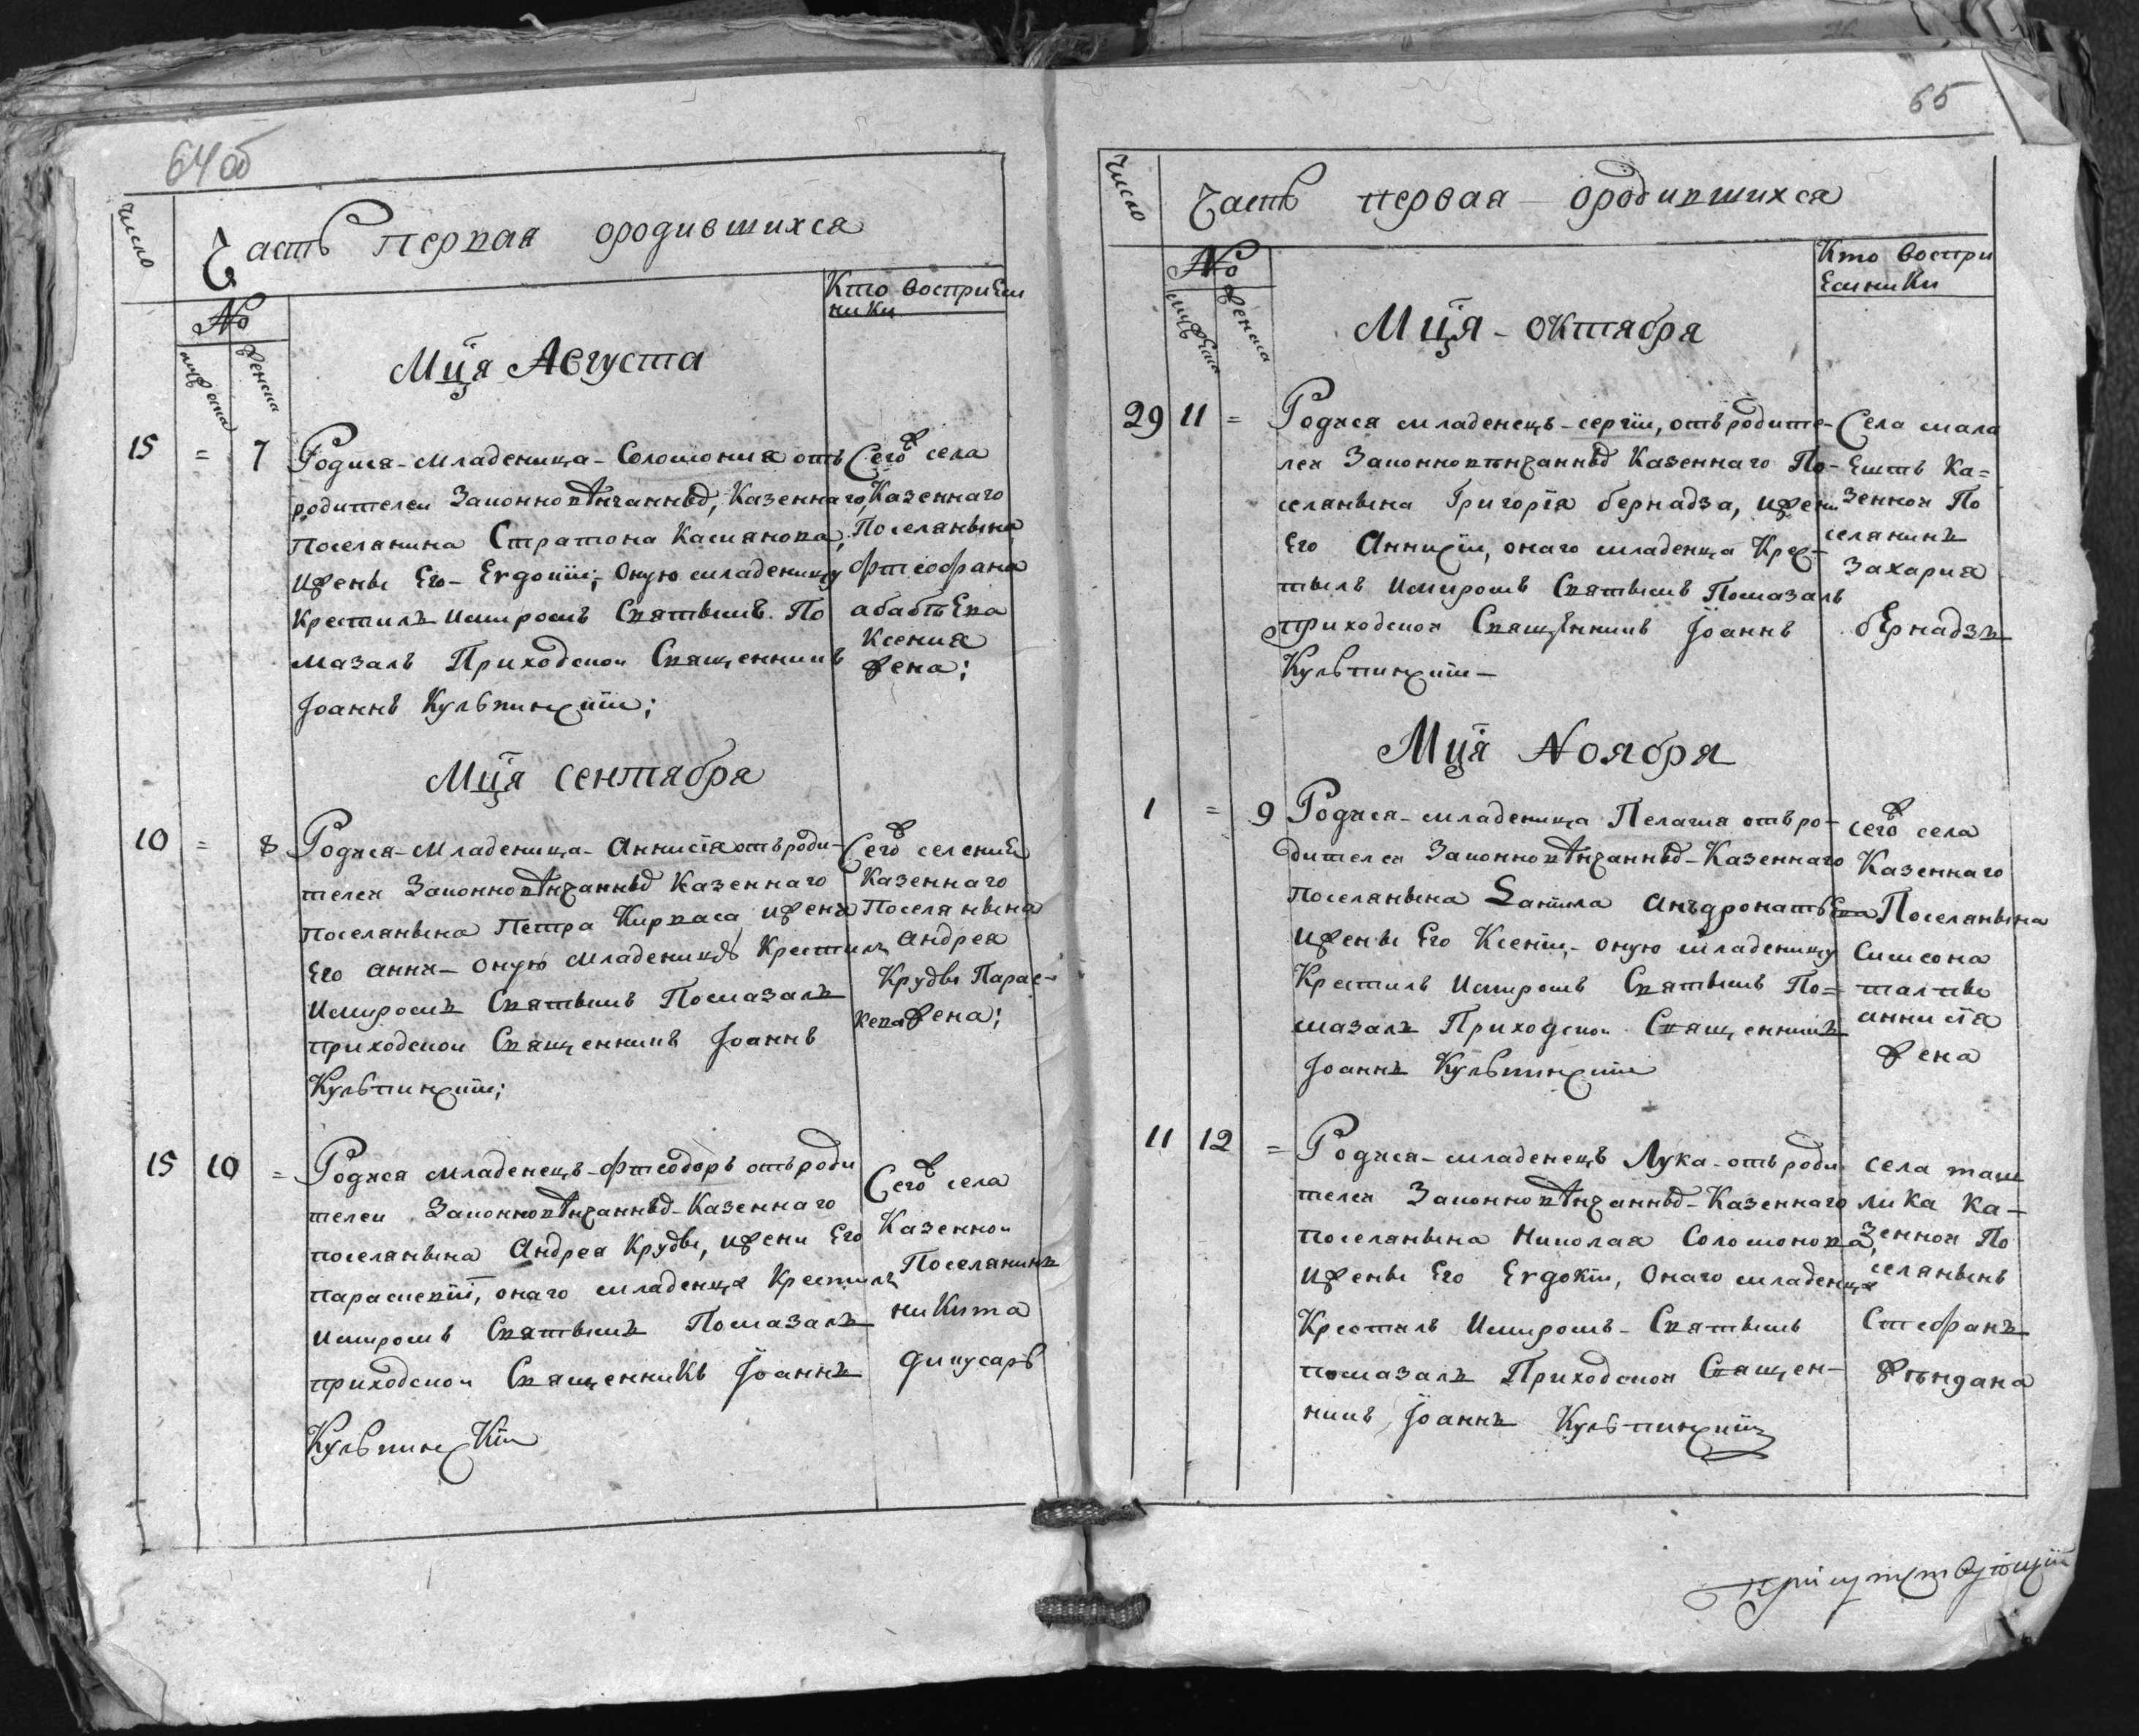 64об
Число
Часть Первая ородившихся
№
мужеска
женска
Кто восприем
ники
Мцⷭ҇а Августа
15 = 7 Родися младеница Соломония отъ
родителей Законновѣнчанныхъ, Казеннаго
Поселянина Стратона Касиянова,
ижены Его Евдокіи; Оную младеницу
Крестилъ имиромъ Святымъ По
мазалъ Приходской Священникъ
Іоаннъ Кульпинскій;
Сего ж села
Казеннаго
Поселянына
Фтеофана
абабѣева
Ксения
жена;
Мцⷭ҇а сентября
10 = 8 Родися Младеница Анисія отъ роди-
телей Законновѣнчанныхъ Казеннаго
поселянына Петра Кирваса, ижены
Его анны оную младеницу Крестилъ
имиромъ Святымъ Помазалъ
приходской Священникъ Іоаннъ
Кульпинскій;
Сего ж селения
Казеннаго
Поселянына
Андрея
Крудвы Парас-
кева жена;
15 10 = Родися младенецъ Фтеодоръ отъ роди
телей Законновѣнчанныхъ Казеннаго
поселянына Андрея Крудвы, ижены Его
параскевіи, онаго младенца Крестилъ
имиромъ Святымъ Помазалъ
приходской Священникъ Іоаннъ
Кульпинскій
Сего ж села
Казенной
Поселянинъ
никита
65
Число
Часть первая ородившихся
№
мужеска
женска
Кто воспри
емники
Мцⷭ҇а октября
29 11 = Родися младенецъ сергій, отъ родите-
лей Законновѣнчанныхъ Казеннаго По-
селянына Григорія бернадза, ижены
Его Анисіи, онаго младенца Крес-
тылъ имиромъ Святымъ Помазалъ
приходской Священникъ Іоаннъ
Кульпинскій
Села мала
Ештъ Ка=
зенной По
селянинъ
Захария
бернадзъ
Мцⷭ҇а Ноября
1 = 9 Родися младеница Пелагия отъ ро-
дителей Законновѣнчанныхъ Казеннаго
поселянына Даніила Анъдронатьева
ижены Его Ксеніи, оную младеницу
Крестилъ имиромъ Святымъ По=
мазалъ Приходской Священникъ
Іоаннъ Кульпинскій
сего ж села
Казеннаго
Поселянына
Симеона
анисія
жена
11 12 = Родися младенецъ Лука отъ роди
телей Законновѣнчанныхъ Казеннаго
поселянына Николая Соломонова,
ижены Его Евдокіи, Онаго младенца
Крестилъ имиромъ Святымъ
помазалъ Приходской Священ-
никъ Іоаннъ Кульпинскій
села таш
лика Ка-
зенной По
селянынъ
Стефанъ
присутствующій